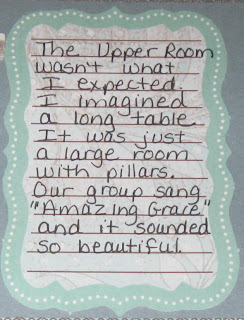 The Upper Room
wasn't what
I expected.
I imagined
a long table.
It was just
a large room
with pillars.
Our group sang
"Amazing Grace"
and it sounded
so beautiful